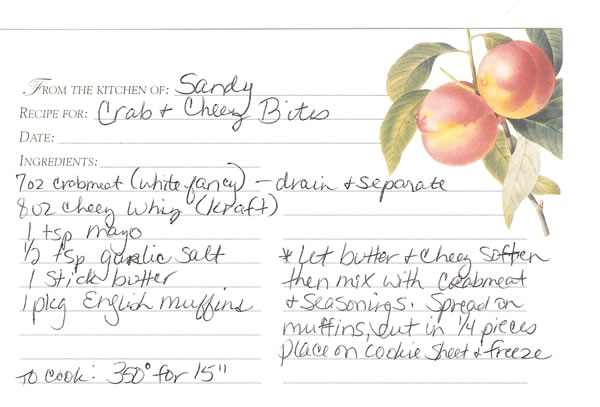 FROM THE KITCHEN OF: Sandy
RECIPE FOR: Crab & Cheezy Bites
DATE:
INGREDIENTS:
7oz crabmeat (white fancy) - drain & separate
8oz cheez whiz (Kraft)
1 tsp mayo
1/2 tsp garlic salt
1 stick butter
1 pkg English muffins
To cook: 350° for 15"
* Let butter & cheez soften
then mix with crabmeat
& seasonings. Spread on
muffins, cut in 1/4 pieces
place on cookie sheet & freeze